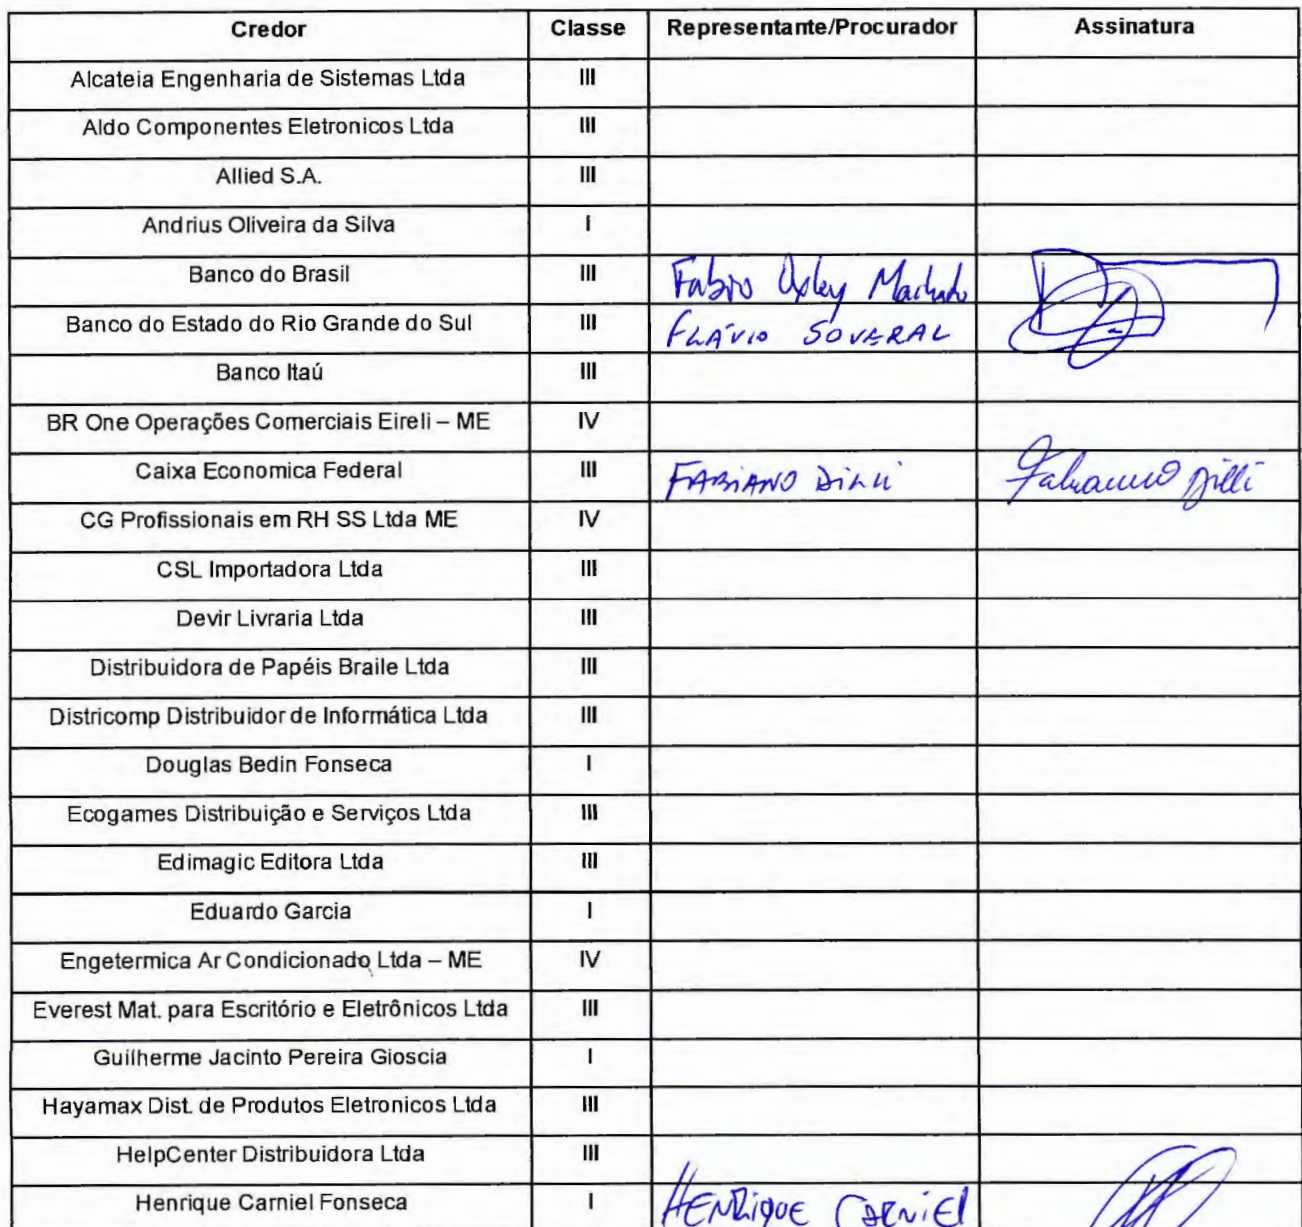 Credor Classe Representante/Procurador Assinatura
Alcateia Engenharia de Sistemas Ltda III
Aldo Componentes Eletronicos Ltda III
Allied S.A. III
Andrius Oliveira da Silva I
Banco do Brasil III Fabio Machado
Banco do Estado do Rio Grande do Sul III FLÁVIO SOVERAL
Banco Itaú III
BR One Operações Comerciais Eireli – ME IV
Caixa Economica Federal III FABIANO DILLI Fabiano Dilli
CG Profissionais em RH SS Ltda ME IV
CSL Importadora Ltda III
Devir Livraria Ltda III
Distribuidora de Papéis Braile Ltda III
Districomp Distribuidor de Informática Ltda III
Douglas Bedin Fonseca I
Ecogames Distribuição e Serviços Ltda III
Edimagic Editora Ltda III
Eduardo Garcia I
Engetermica Ar Condicionado Ltda – ME IV
Everest Mat. para Escritório e Eletrônicos Ltda III
Guilherme Jacinto Pereira Gioscia I
Hayamax Dist. de Produtos Eletronicos Ltda III
HelpCenter Distribuidora Ltda III
Henrique Carniel Fonseca I HENRIQUE CARNIEL